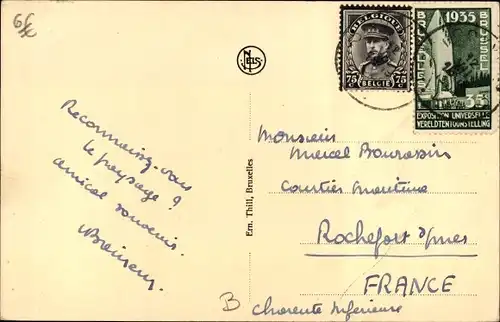 6€
Reconnaissez-vous
le paysage ?
amical souvenir.
NELS
Ern. Thill, Bruxelles
BELGIQUE
75 c 75 c
BELGIË
1935
BRUXELLES BRUSSEL
35 c
EXPOSITION UNIVERSELLE
WERELDTENTOONSTELLING
Monsieur
Marcel Bourrassin
Courtier Maritime
Rochefort s/mer
FRANCE
B
Charente Inférieure